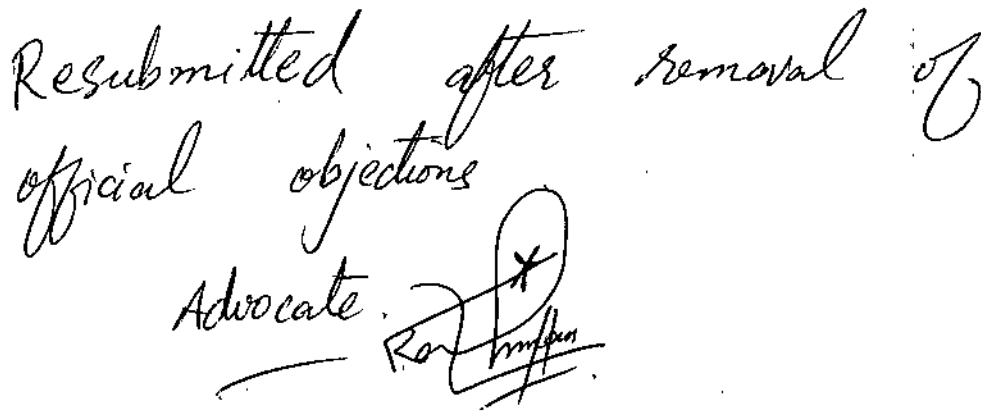 Resubmitted after removal of
official objections
Advocate.